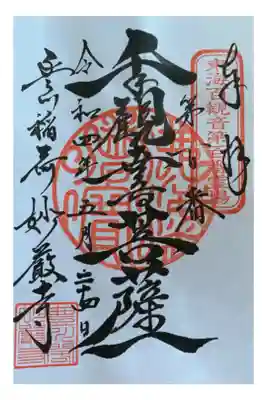 東海百観音第百番霊場
奉拝
第百番
千手観音菩薩
令和四年五月二十四日
豊川稲荷妙厳寺